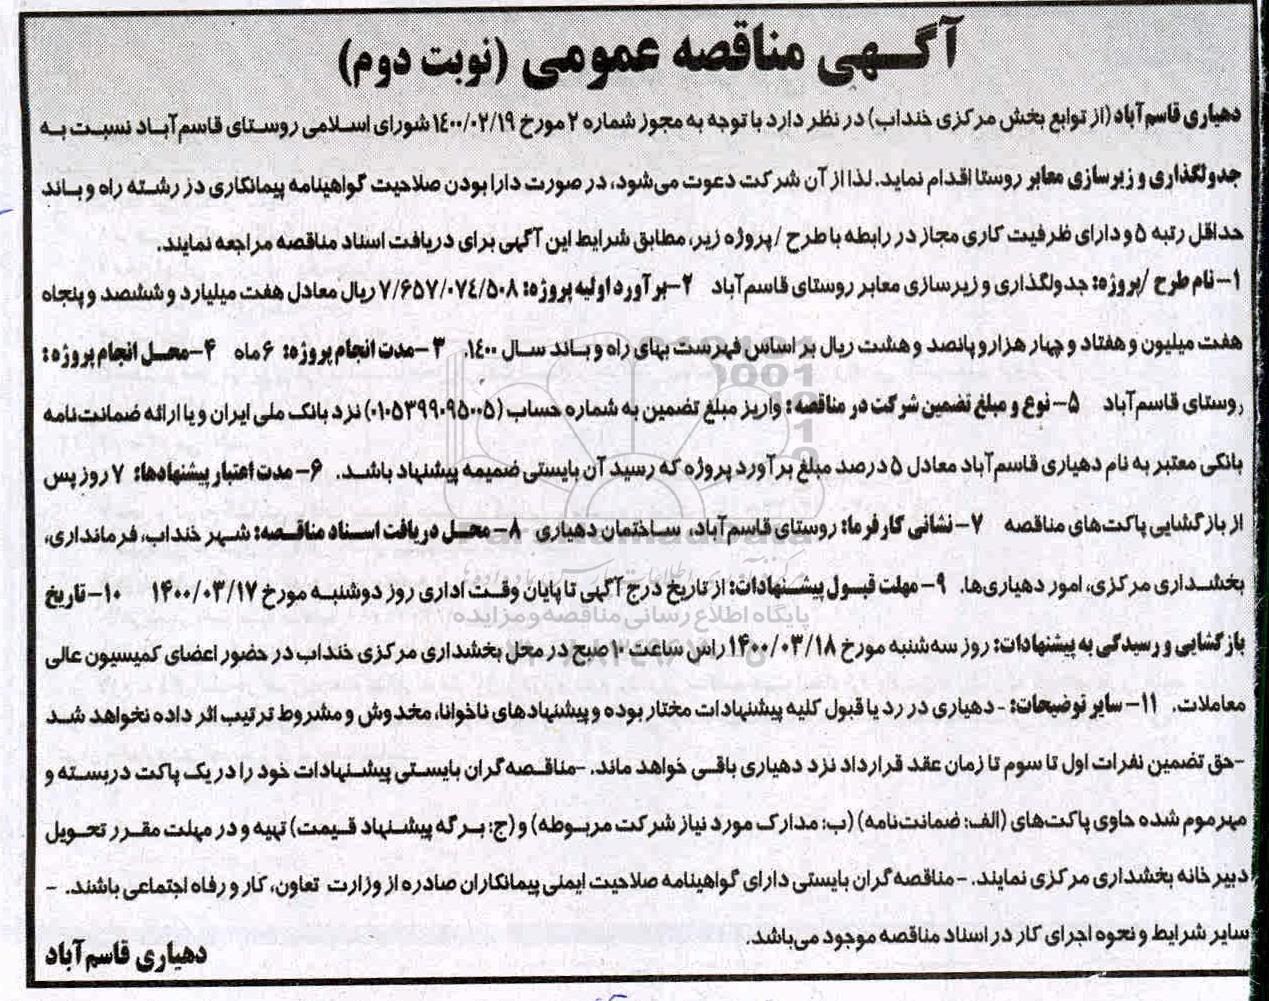 آگهی مناقصه عمومی (نوبت دوم)
دهیاری قاسم‌آباد (از توابع بخش مرکزی خنداب) در نظر دارد با توجه به مجوز شماره ۲ مورخ ۱۴۰۰/۰۲/۱۹ شورای اسلامی روستای قاسم‌آباد نسبت به
جدولگذاری و زیرسازی معابر روستا اقدام نماید. لذا از آن شرکت دعوت می‌شود، در صورت دارا بودن صلاحیت گواهینامه پیمانکاری در رشته راه و باند
حداقل رتبه ۵ و دارای ظرفیت کاری مجاز در رابطه با طرح / پروژه زیر، مطابق شرایط این آگهی برای دریافت اسناد مناقصه مراجعه نمایند.
۱- نام طرح /پروژه: جدولگذاری و زیرسازی معابر روستای قاسم‌آباد ۲- برآورد اولیه پروژه: ۷/۶۵۷/۰۷۴/۵۰۸ ریال معادل هفت میلیارد و ششصد و پنجاه
هفت میلیون و هفتاد و چهار هزار و پانصد و هشت ریال بر اساس فهرست بهای راه و باند سال ۱۴۰۰. ۳- مدت انجام پروژه: ۶ ماه ۴- محل انجام پروژه :
روستای قاسم‌آباد ۵- نوع و مبلغ تضمین شرکت در مناقصه : واریز مبلغ تضمین به شماره حساب (۰۱۰۵۳۹۹۰۹۵۰۰۵) نزد بانک ملی ایران و یا ارائه ضمانت‌نامه
بانکی معتبر به نام دهیاری قاسم‌آباد معادل ۵ درصد مبلغ برآورد پروژه که رسید آن بایستی ضمیمه پیشنهاد باشد. ۶- مدت اعتبار پیشنهادها: ۷ روز پس
از بازگشایی پاکت‌های مناقصه ۷- نشانی کارفرما: روستای قاسم‌آباد، ساختمان دهیاری ۸- محل دریافت اسناد مناقصه: شهر خنداب، فرمانداری،
بخشداری مرکزی، امور دهیاری‌ها. ۹- مهلت قبول پیشنهادات: از تاریخ درج آگهی تا پایان وقت اداری روز دوشنبه مورخ ۱۴۰۰/۰۳/۱۷ ۱۰- تاریخ
پایگاه اطلاع رسانی مناقصه و مزایده
بازگشایی و رسیدگی به پیشنهادات: روز سه‌شنبه مورخ ۱۴۰۰/۰۳/۱۸ راس ساعت ۱۰ صبح در محل بخشداری مرکزی خنداب در حضور اعضای کمیسیون عالی
معاملات. ۱۱- سایر توضیحات: - دهیاری در رد یا قبول کلیه پیشنهادات مختار بوده و پیشنهادهای ناخوانا، مخدوش و مشروط ترتیب اثر داده نخواهد شد
-حق تضمین نفرات اول تا سوم تا زمان عقد قرارداد نزد دهیاری باقی خواهد ماند. -مناقصه‌گران بایستی پیشنهادات خود را در یک پاکت دربسته و
مهرموم شده حاوی پاکت‌های (الف: ضمانت‌نامه) (ب: مدارک مورد نیاز شرکت مربوطه) و (ج: برگه پیشنهاد قیمت) تهیه و در مهلت مقرر تحویل
دبیرخانه بخشداری مرکزی نمایند. -مناقصه‌گران بایستی دارای گواهینامه صلاحیت ایمنی پیمانکاران صادره از وزارت تعاون، کار و رفاه اجتماعی باشند. -
سایر شرایط و نحوه اجرای کار در اسناد مناقصه موجود می‌باشد.
دهیاری قاسم‌آباد